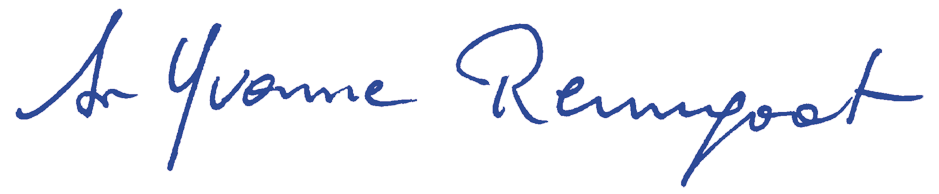 Sr Yvonne Reungoat